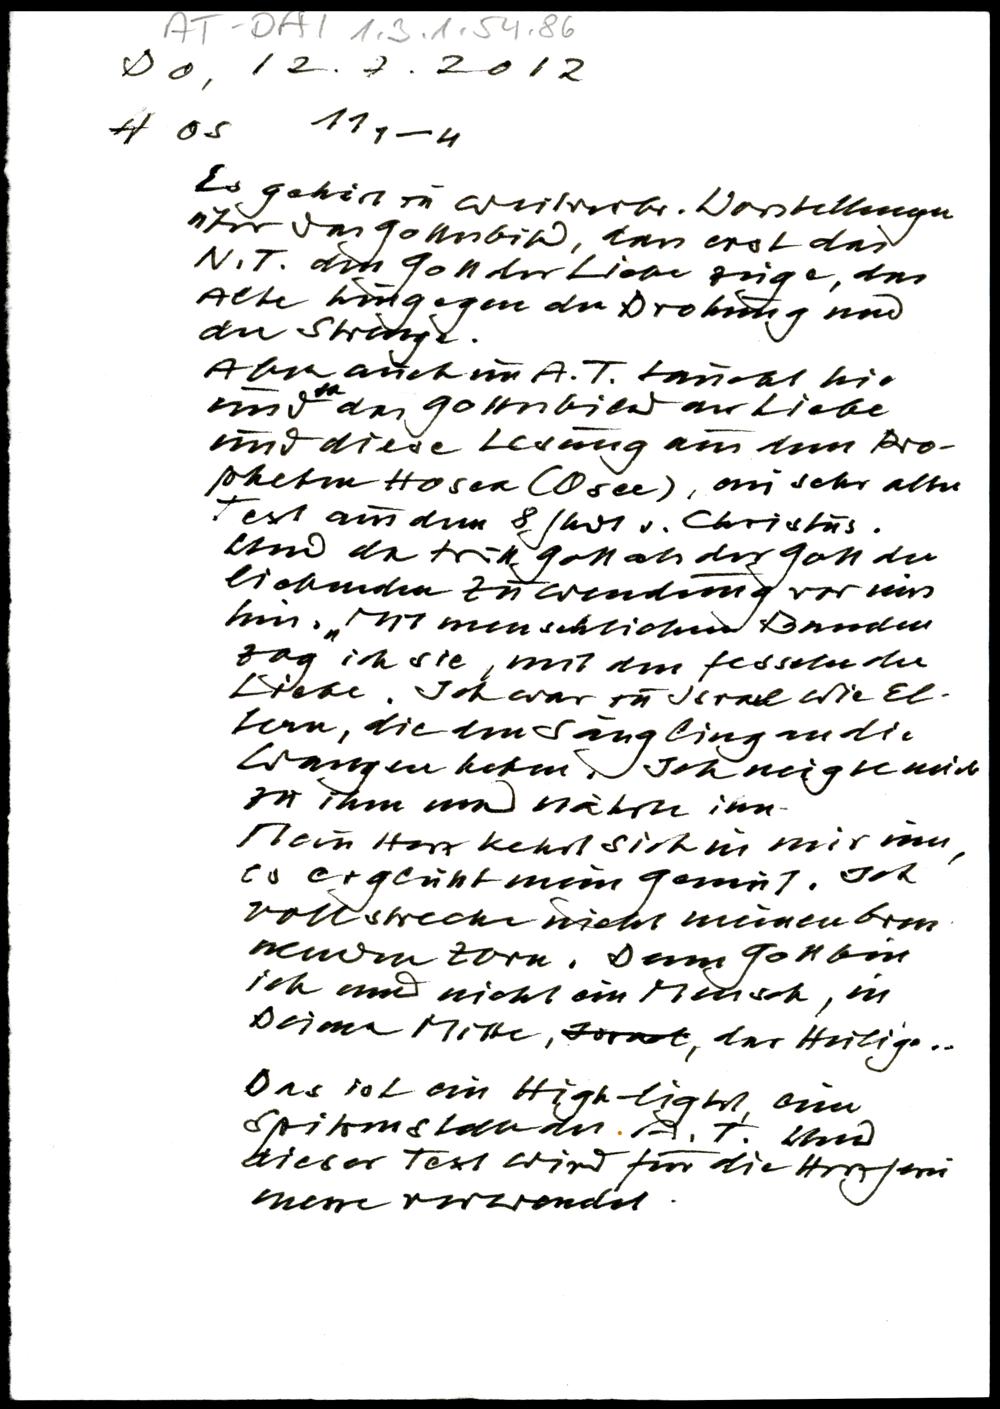 AT-DAI 1.3.1.54.86
Do, 12.7.2012
Hos 11,1-4
Es gehört zu weitverbr. Vorstellungen
über das Gottesbild, dass erst das
N.T. den Gott der Liebe zeige, das
Alte hingegen der Drohung und
der Strenge.
Aber auch im A.T. taucht hie
und da das Gottesbild der Liebe
und diese Lesung aus dem Pro-
pheten Hosea (Osee), ein sehr alter
Text aus dem 8. Jhdt v. Christus.
Und da tritt Gott als der Gott der
liebenden Zuwendung vor uns
hin. „Mit menschlichen Banden
zog ich sie, mit den Fesseln der
Liebe. Ich war zu Israel wie El-
tern, die den Säugling an die
Wangen heben. Ich neigte mich
zu ihm und nährte ihn.
Mein Herz kehrt sich in mir um,
es erglüht mein Gemüt. Ich
vollstrecke nicht meinen bren
nenden Zorn. Denn Gott bin
ich und nicht ein Mensch, in
Deiner Mitte, der Heilige..
Das ist ein High-light, eine
Spitzenstelle des A.T. Und
dieser Text wird für die Herz Jesu
messe verwendet.